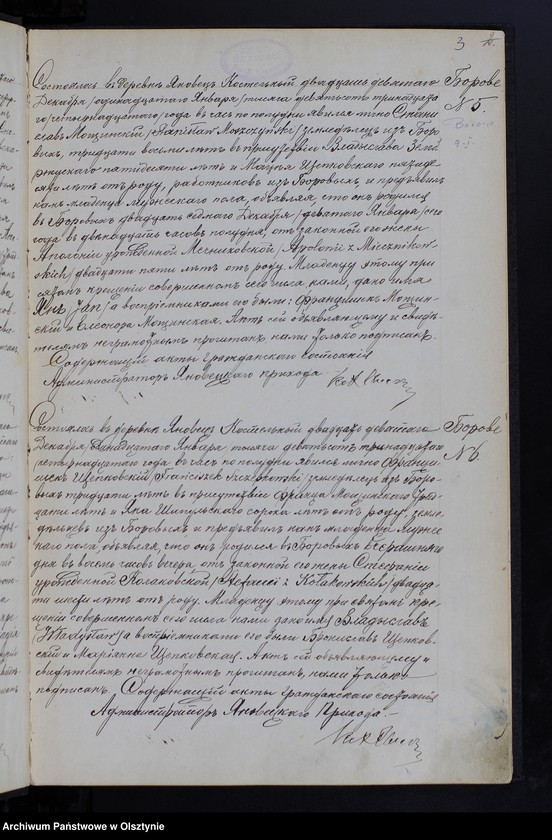 3
Состоялось въ деревнѣ Яновецъ Костельный двадцать девятаго
Декабря /одинадцатаго Января/ тысяча девятьсотъ тринадцата
го /четырнадцатаго/ года въ часъ по полудни явился лично Стани
славъ Мощинскій /Stanisław Moszczyński/ земледѣлецъ изъ Боро
выхъ, тридцати восьми лѣтъ въ присутствіи Владислава
пятидесяти лѣтъ и Щепковскаго
лѣтъ отъ роду, работниковъ изъ Боровыхъ, и предъявилъ
намъ младенца мужескаго пола, объявляя, что онъ родился
въ Боровыхъ двадцать седьмаго Декабря /девятаго Января/ сего
года въ двѣнадцать часовъ полудня, отъ законной его жены
Аполоніи урожденной Мечниковской /Apolonii z Miecznikow
skich/ двадцати пяти лѣтъ отъ роду. Младенцу этому при
святомъ крещеніи совершенномъ сего числа нами, дано имя
Янъ /Jan/ а воспріемниками его были: Францишекъ Мощин
скій и Елеонора Мощинская. Актъ сей объявляющему и свидѣ
телямъ неграмотнымъ прочитанъ нами только подписанъ.
Содержащій акты гражданскаго состоянія
Администраторъ Яновецкаго прихода
Борове
N 5
Состоялось въ деревнѣ Яновецъ Костельный двадцать девятаго
Декабря /одинадцатаго Января/ тысяча девятьсотъ тринадцатаго
/четырнадцатаго/ года въ часъ по полудни явился лично Франци
шекъ Щепковскій /Franciszek Szczepkowski/ земледѣлецъ изъ Боро
выхъ тридцати лѣтъ въ присутствіи Франца Мощинскаго
дцати лѣтъ и Яна сорока лѣтъ отъ роду, земле
дѣльцевъ изъ Боровыхъ и предъявилъ намъ младенца муже
скаго пола объявляя, что онъ родился въ Боровыхъ вчерашняго
дня въ восемь часовъ вечера, отъ законной его жены Стефаніи
урожденной Колаковской /Stefanii z Kołakowskich/ двадца
ти шести лѣтъ отъ роду. Младенцу этому при святомъ кре
щеніи совершенномъ сего числа нами дано имя Владыславъ
/Władysław/ а воспріемниками его были Брониславъ Щепков
скій и Маріянна Щепковская. Актъ сей объявляющему и
свидѣтелямъ неграмотнымъ прочитанъ, нами только
подписанъ. Содержащій акты гражданскаго состоянія
Администраторъ Яновецкаго Прихода.
Борове
N 6
Archiwum Państwowe w Olsztynie